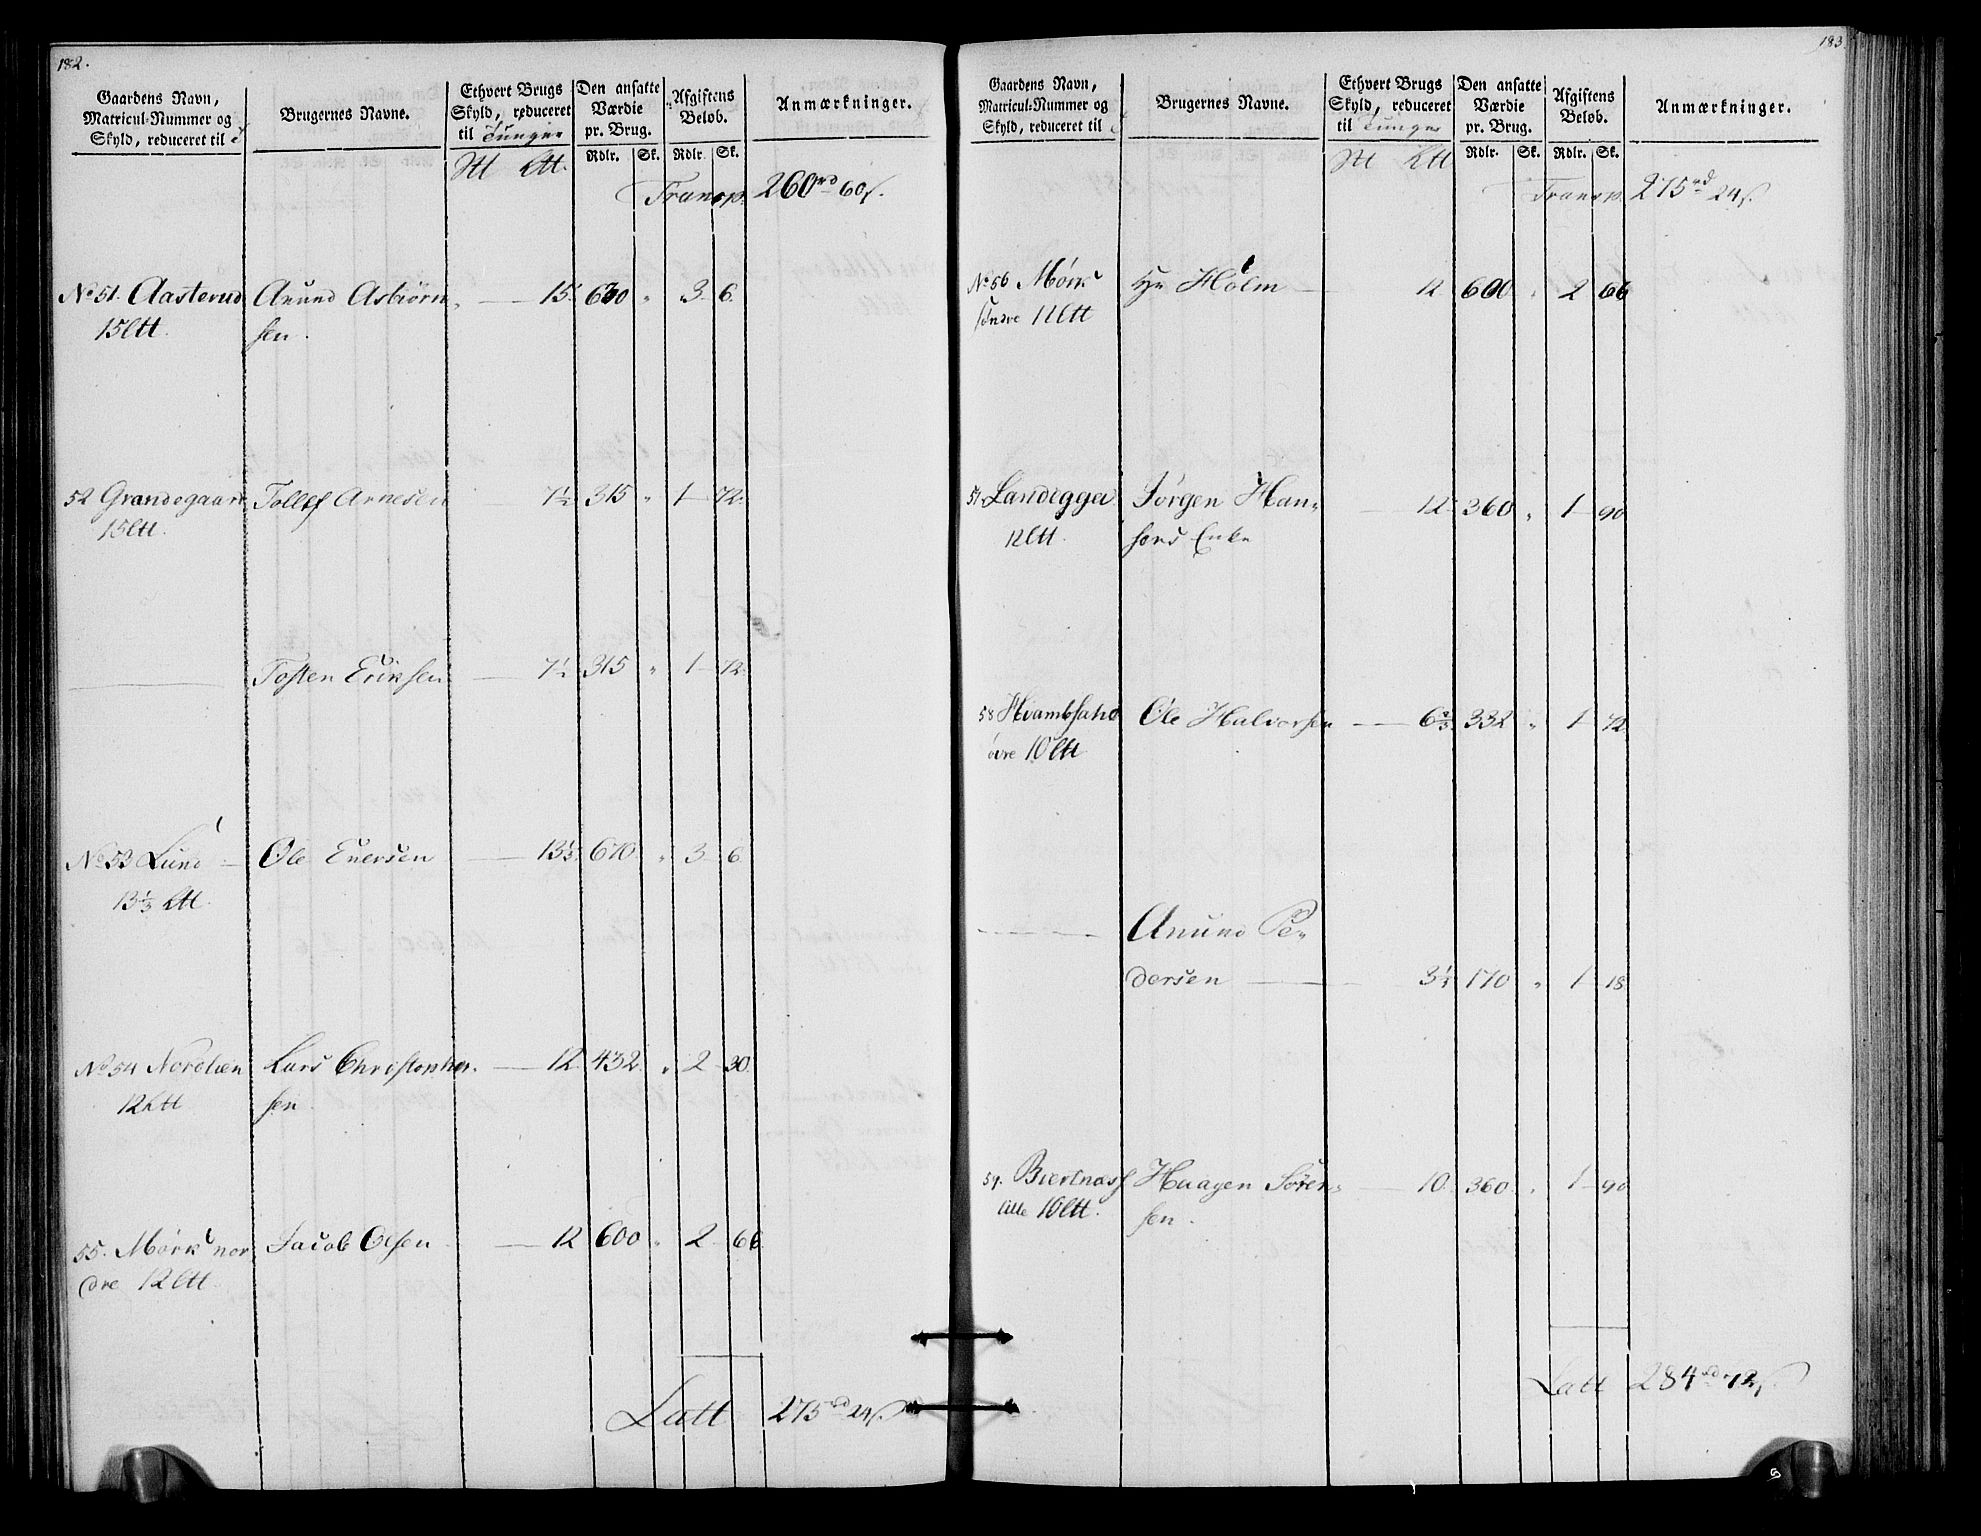 182.
Gaardens Navn, Matricul-Nummer og Skyld, reduceret til
Brugernes Navne.
Ethvert Brugs Skyld, reduceret til Tunger
Den ansatte Værdie pr. Brug.
Afgiftens Beløb.
Anmærkninger.
Rdlr. Sk. Rdlr. Sk.
Transp. 260 rd 60 s.
No 51. Aasterud Anund Asbiørn 15. 630 " 3 6.
15 Ltt. sen.
52 Grandegaard Tollef Arnesen 7½ 315 " 1 72.
15 Ltt.
Tosten Eriksen 7½ 315 " 1 72.
No 53 Lund Ole Eversen 13⅓ 670 " 3 6
13⅓ Ltt.
No 54 Nordlien Lars Christopher 12. 432 " 2 30.
12 Ltt sen.
55. Mørk nor Jacob Olsen 12 600 " 2 66
dre 12 Ltt.
Latt 275 rd 24 s.
183
Gaardens Navn, Matricul-Nummer og Skyld, reduceret til
Brugernes Navne.
Ethvert Brugs Skyld, reduceret til Tunger
Den ansatte Værdie pr. Brug.
Afgiftens Beløb.
Anmærkninger.
Rdlr. Sk. Rdlr. Sk.
Transp. 275 rd 24 s.
No 56 Mørk Hr Holm 12 600 " 2 66
søndre 12 Ltt
57. Landigger Jørgen Han" 12. 360 " 1 90
12 Ltt. sens Enke
58 Ole Halvorsen 6⅔ 332 " 1 72.
øvre 10 Ltt
Anund Pe"
dersen 3⅓ 170 " 1 18
59. Biertnæss Haagen Søren" 10. 360 " 1 90
lille 10 Ltt. sen.
Latt 284 rd 72 s.